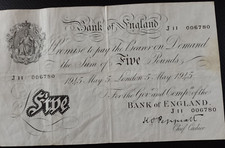 Bank of England
J 11 006780
Promise to pay the Bearer on Demand
J 11 006780
the Sum of Five Pounds
1945 May 5 London 5 May 1945
For the Gov.r and Comp.a of the
BANK OF ENGLAND.
J 11 006780
Five
K O Peppiatt
Chief Cashier